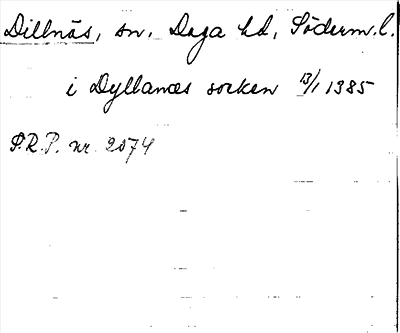 Dillnäs, sn, Daga hd, Söderm.l.
i Dyllanæs socken 13/1 1385
P.R.P. nr. 2074